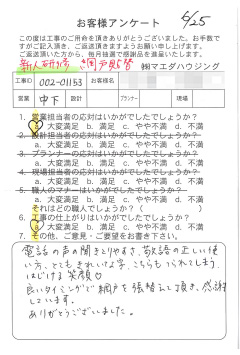 お客様アンケート 5/25
この度は工事のご用命を頂きありがとうございました。お手数で
すがご記入頂き、ご返送頂きますようお願い申し上げます。
ご返送頂いた方から、毎月抽選で感謝品を進呈いたします。
網戸張替 ㈱マエダハウジング
工事ID 002-01153 お客様名
営業 中下 設計 プランナー 現場
1. 営業担当者の応対はいかがでしたでしょうか?
a. 大変満足 b. 満足 c. やや不満 d. 不満
2. 設計担当者の応対はいかがでしたでしょうか?
a. 大変満足 b. 満足 c. やや不満 d. 不満
3. プランナーの応対はいかがでしたでしょうか?
a. 大変満足 b. 満足 c. やや不満 d. 不満
4. 現場担当者の応対はいかがでしたでしょうか?
a. 大変満足 b. 満足 c. やや不満 d. 不満
5. 職人のマナーはいかがでしたでしょうか?
a. 大変満足 b. 満足 c. やや不満 d. 不満
それはどの職人でしょうか? ( )
6. 工事の仕上がりはいかがでしたでしょうか?
a. 大変満足 b. 満足 c. やや不満 d. 不満
7. その他、ご意見・ご要望をお書き下さい。
電話の声の聞きとりやすさ、敬語の正しい使
い方、とてもきれいな字、こちらもつられてしまう
はじける笑顔
良いタイミングで網戸を張替えして頂き、感謝
しています。
ありがとうございました。